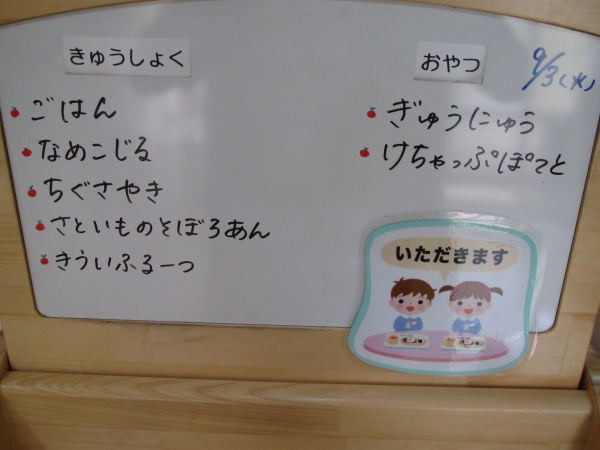 きゅうしょく
ごはん
なめこじる
ちぐさやき
さといものそぼろあん
きういふるーつ
おやつ
9/3(水)
ぎゅうにゅう
けちゃっぷぽてと
いただきます